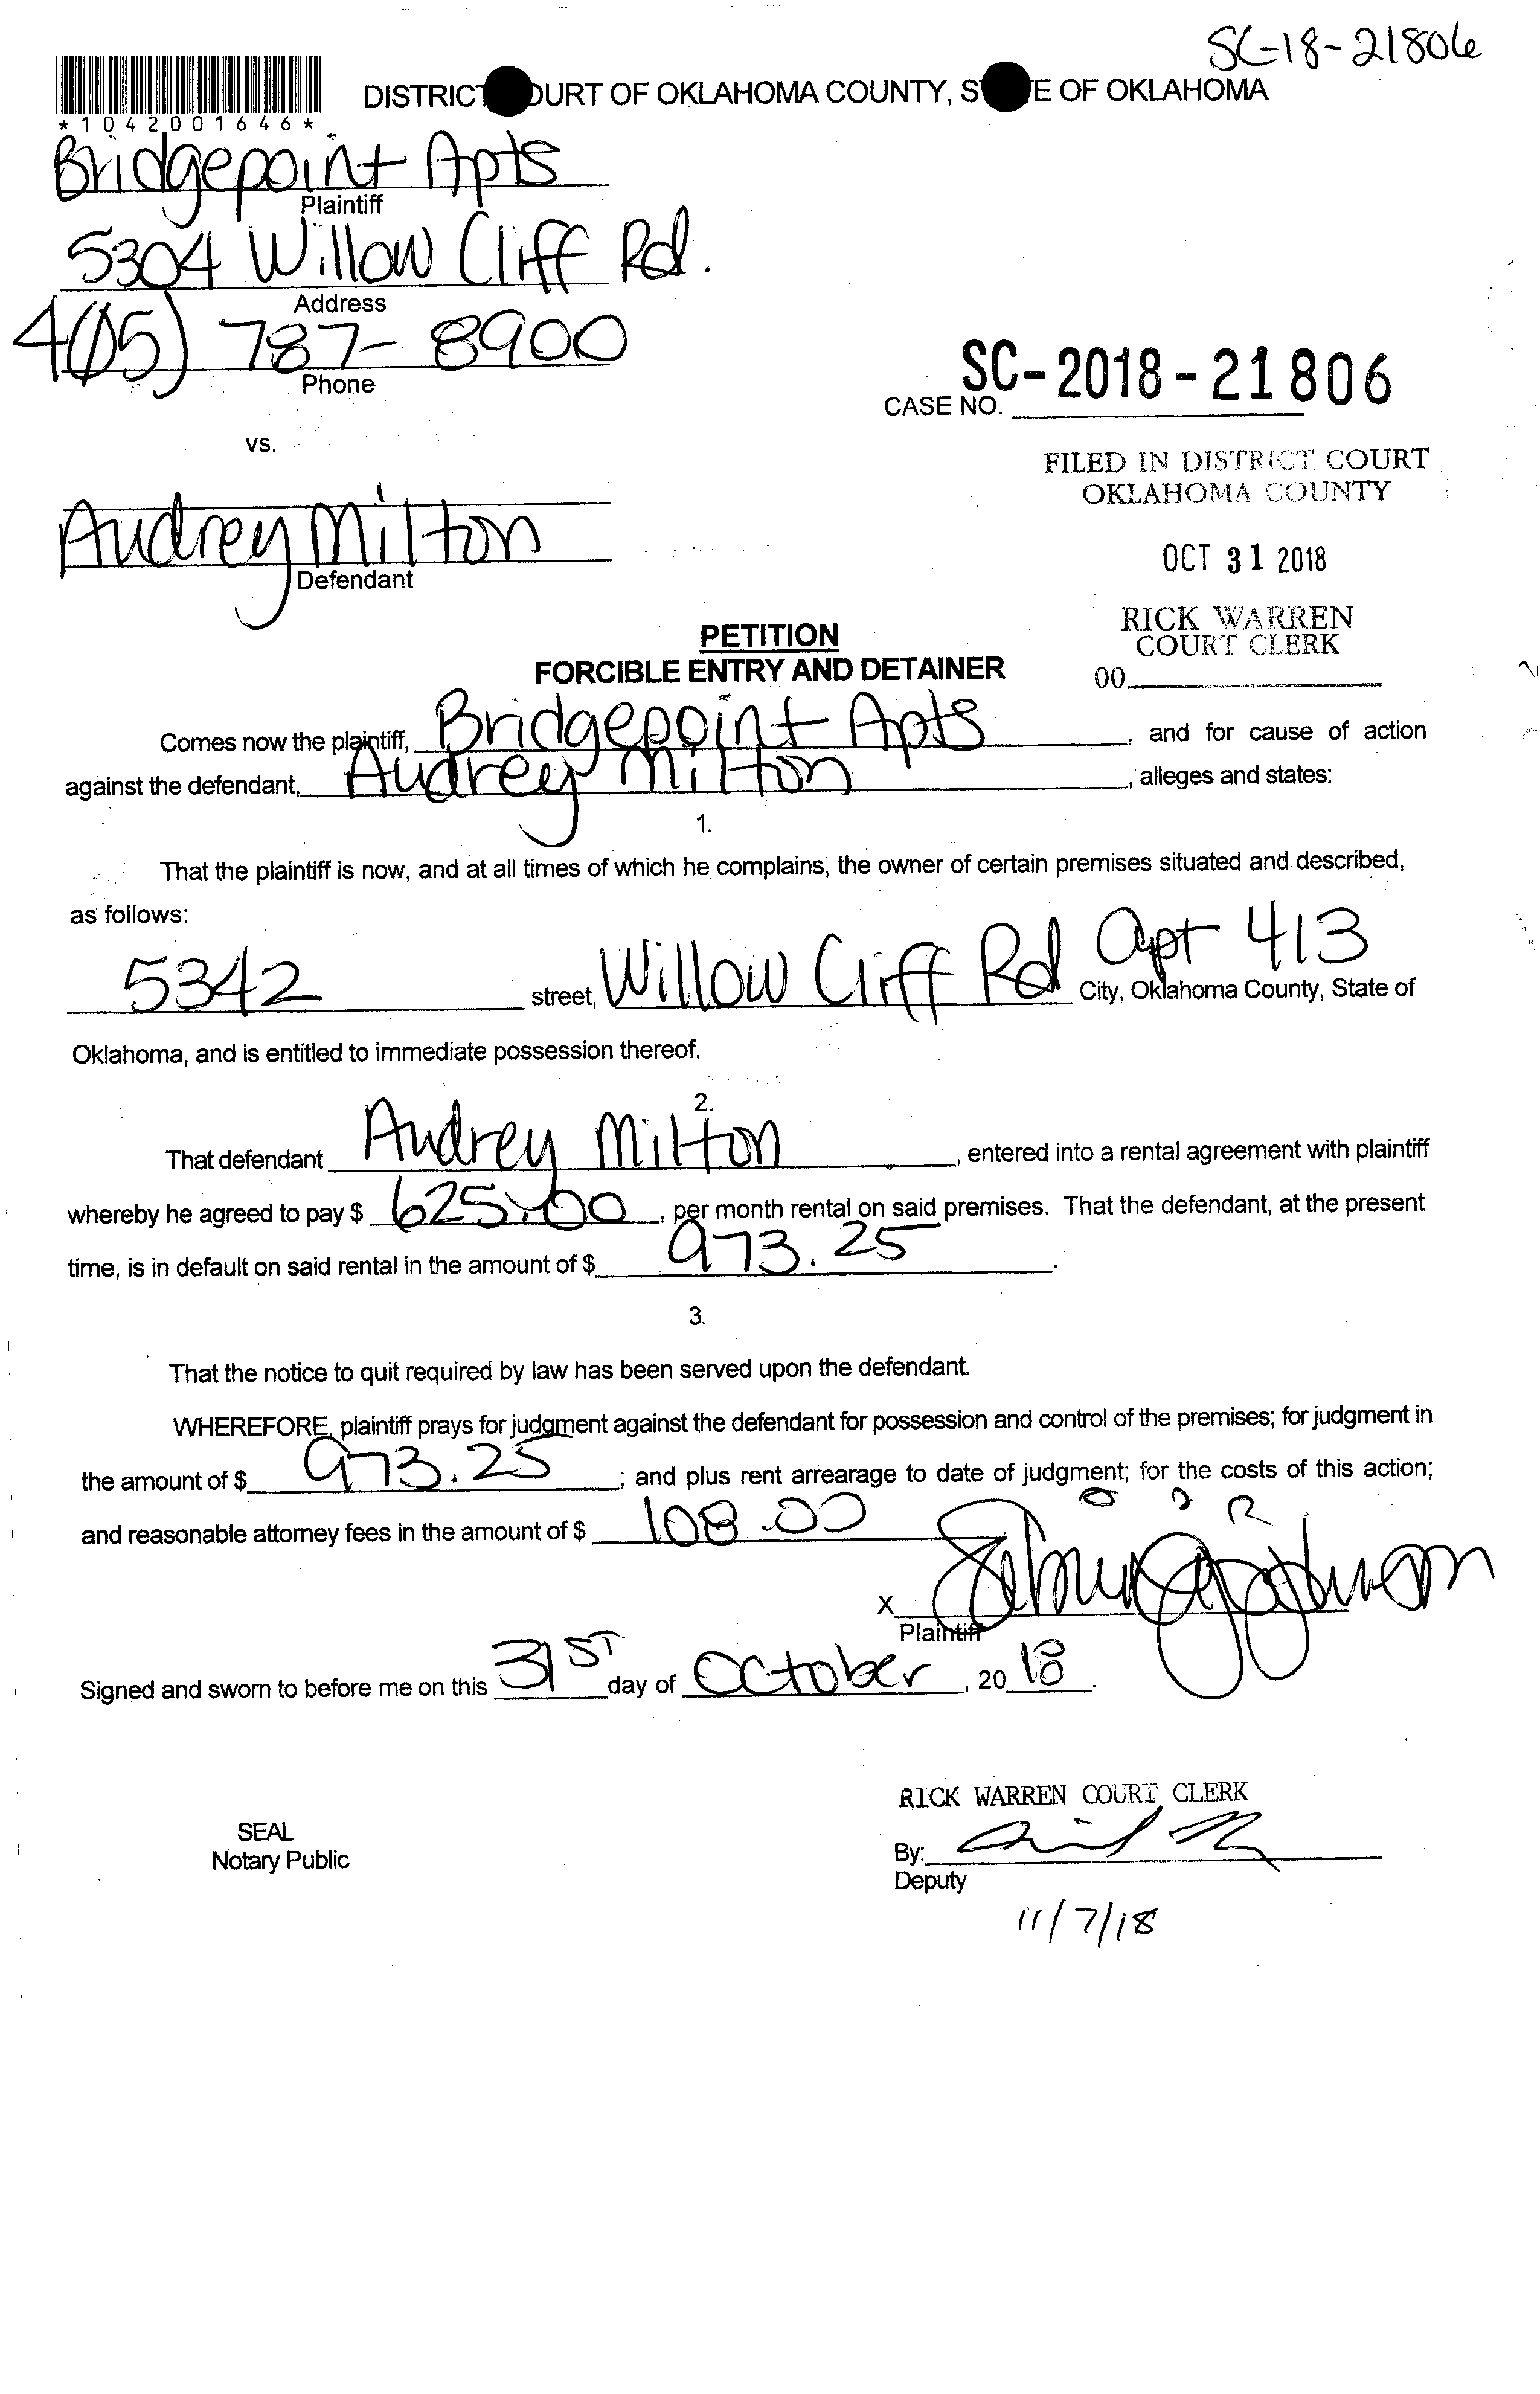 SC-18-21806
DISTRIC OURT OF OKLAHOMA COUNTY, S E OF OKLAHOMA
*1042001646*
Bridgepoint Apts
Plaintiff
5304 Willow Cliff Rd.
Address
4(05) 787-8900
Phone
SC-2018-21806
CASE NO.
vs.
FILED IN DISTRICT COURT
OKLAHOMA COUNTY
Audrey Milton
Defendant
OCT 31 2018
RICK WARREN
COURT CLERK
00
PETITION
FORCIBLE ENTRY AND DETAINER
Comes now the plaintiff, Bridgepoint Apts, and for cause of action
against the defendant, Audrey Milton, alleges and states:
1.
That the plaintiff is now, and at all times of which he complains, the owner of certain premises situated and described,
as follows:
5342 street, Willow Cliff Rd Apt 413 City, Oklahoma County, State of
Oklahoma, and is entitled to immediate possession thereof.
2.
That defendant Audrey Milton, entered into a rental agreement with plaintiff
whereby he agreed to pay $ 625.00, per month rental on said premises. That the defendant, at the present
time, is in default on said rental in the amount of $ 973.25.
3.
That the notice to quit required by law has been served upon the defendant.
WHEREFORE, plaintiff prays for judgment against the defendant for possession and control of the premises; for judgment in
the amount of $ 973.25; and plus rent arrearage to date of judgment; for the costs of this action;
and reasonable attorney fees in the amount of $ 108.00
X
Plaintiff
Signed and sworn to before me on this 31ST day of October, 20 18.
RICK WARREN COURT CLERK
SEAL
Notary Public
By:
Deputy
11/7/18